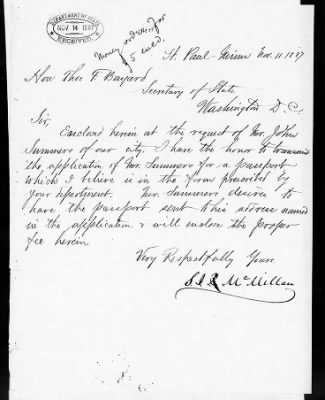 DEPARTMENT OF STATE
NOV 14 1887
RECEIVED
Money order for
5 encl.
St. Paul Minn Nov. 11. 1887
Hon Thos F Bayard
Secretary of State
Washington D. C.
Sir,
Enclosed herein at the request of Mr. John
Summers of our city, I have the honor to transmit
the application of Mr. Summers for a passport
which I believe is in the form prescribed by
your department. Mr. Summers desires to
have the passport sent to his address named
in the application & will enclose the proper
fee herein.
Very Respectfully Yours.
S. J. R. McMillan